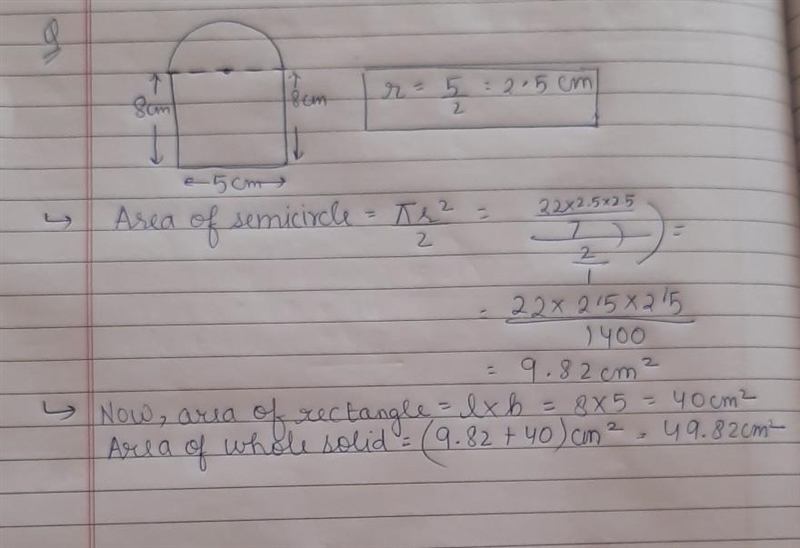 Q
8cm 8cm r = 5/2 = 2.5 cm
5cm
↳ Area of semicircle = πr²/2 = 22×2.5×2.5/7/2/1 =
= 22×25×25/1400
= 9.82cm²
↳ Now, area of rectangle = l×b = 8×5 = 40cm²
Area of whole solid = (9.82+40)cm² = 49.82cm²